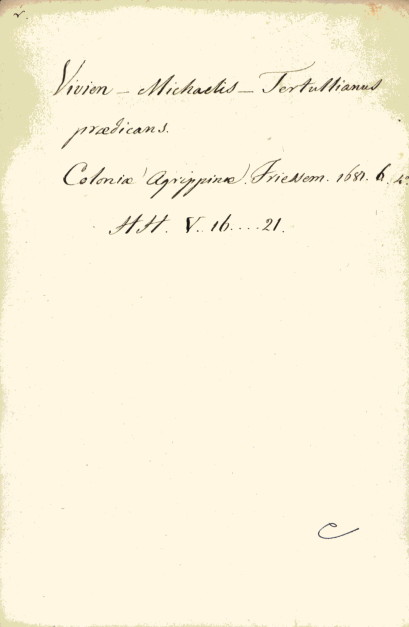 v.
Vivien – Michaelis – Tertullianus
prædicans.
Coloniæ Agrippinæ. Friessem. 1681. 6. 4º
HH. V. 16....21.
C